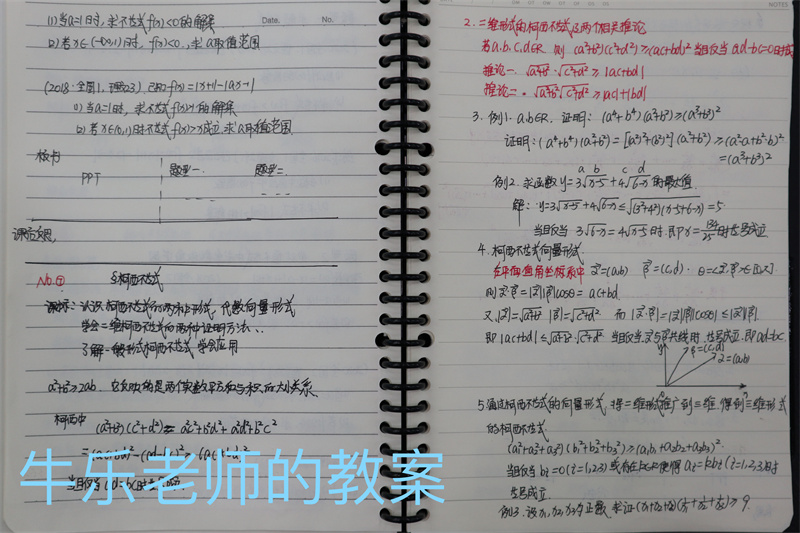 (1) 当a=1时, 求不等式f(x)<0的解集
Date.
No.
(2) 若x∈(-∞,1)时, f(x)<0, 求a取值范围
(2018·全国1, 理数23) 已知f(x)=|x+1|-|ax-1|
(1) 当a=1时, 求不等式f(x)>1的解集
(2) 若x∈(0,1)时不等式f(x)>x成立, 求a取值范围
板书
PPT
题型一
题型二
课后反思
No.①
§柯西不等式
课标: 认识柯西不等式的两种形式, 代数向量形式
学会二维柯西不等式的两种证明方法
了解一般形式柯西不等式, 学会应用
a²+b²≥2ab. 它反映的是两个实数平方和与积的大小关系.
(a²+b²)(c²+d²) = a²c²+b²d²+a²d²+b²c²
牛乐老师的教案
NOTES
2. 二维形式的柯西不等式及两个相关推论
若a.b.c.d∈R 则 (a²+b²)(c²+d²)≥(ac+bd)² 当且仅当ad-bc=0时
推论一. √a²+b²·√c²+d²≥|ac+bd|
推论二. √a²+b²√c²+d²≥|ac|+|bd|
3. 例1. a.b∈R. 证明: (a⁴+b⁴)(a²+b²)≥(a³+b³)²
证明: (a⁴+b⁴)(a²+b²)=[(a²)²+(b²)²](a²+b²)≥(a²·a+b²·b)²
=(a³+b³)²
a b c d
例2. 求函数y=3√x-5+4√6-x的最大值
解: y=3√x-5+4√6-x≤√(3²+4²)(x-5+6-x)=5
当且仅当 3√6-x=4√x-5时. 即x=134/25时等号成立
4. 柯西不等式向量形式.
在平面直角坐标系中
则α·β=|α||β|cosθ=ac+bd
又|α|=√a²+b² |β|=√c²+d² 而|α·β|=|α||β||cosθ|≤|α||β|.
即|ac+bd|≤√a²+b²·√c²+d² 当且仅当α与β共线时. 等号成立. 即ad=bc.
5. 通过柯西不等式的向量形式, 将二维形式推广到三维. 得到三维形式
的柯西不等式.
(a₁²+a₂²+a₃²)(b₁²+b₂²+b₃²)≥(a₁b₁+a₂b₂+a₃b₃)²
当且仅当 bi=0(i=1,2,3)或存在k∈R使得 ai=kbi(i=1,2,3)时
等号成立.
例3. 设x₁,x₂,x₃为正数. 求证(x₁+x₂+x₃)(1/x₁+1/x₂+1/x₃)≥9.